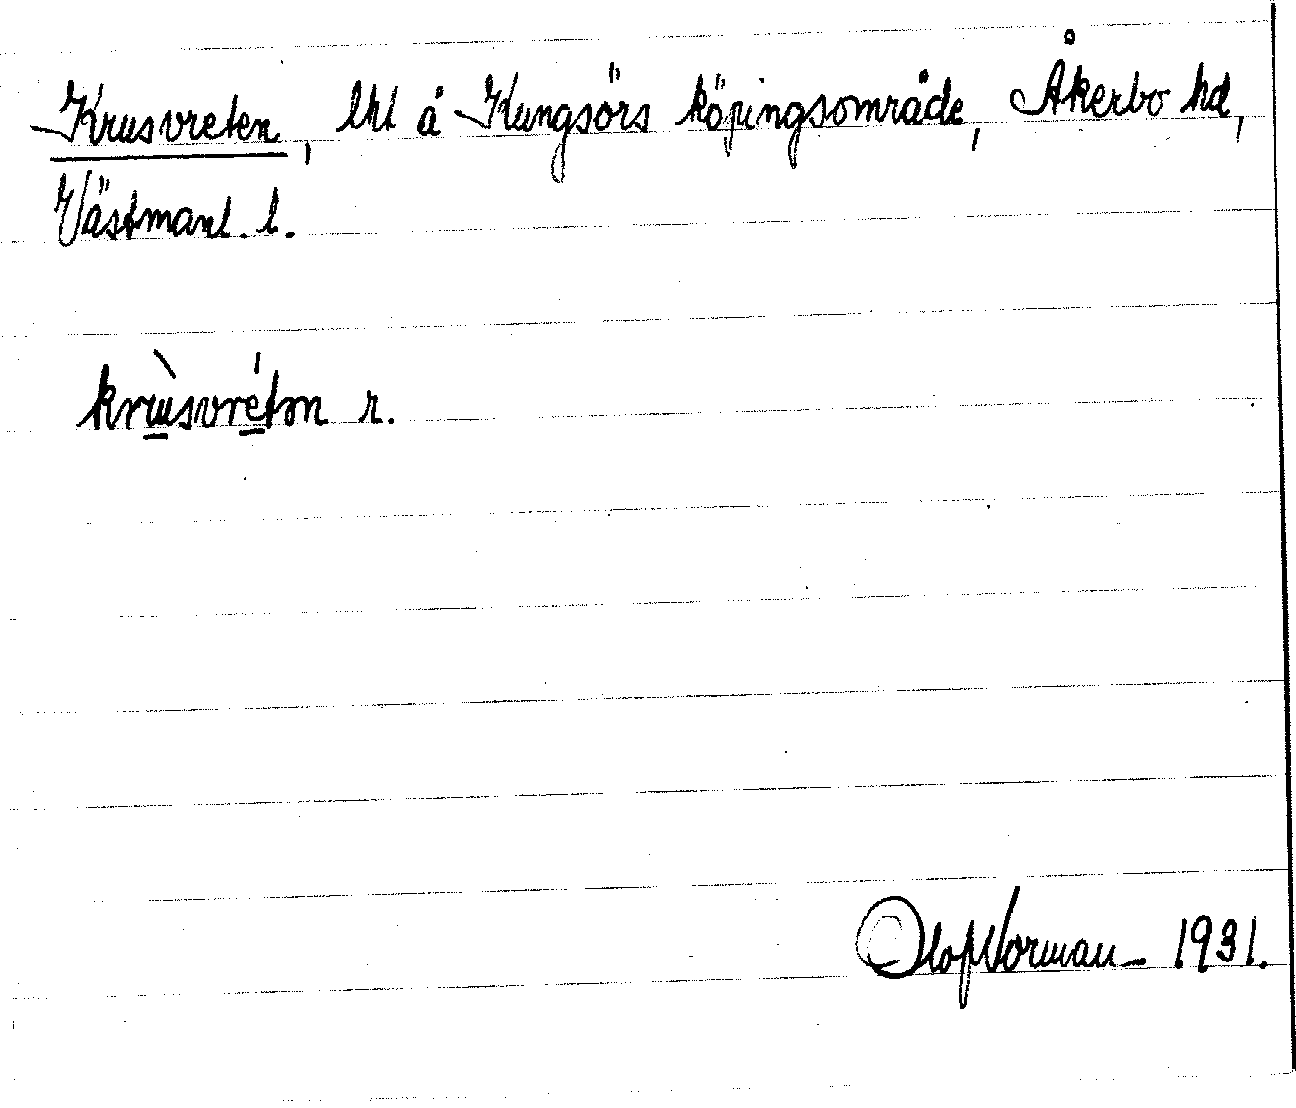 Krusvreten, lht å Kungsörs köpingsområde, Åkerbo hd,
Västmanl. l.
krùsvrétən r.
Olof Norman 1931.